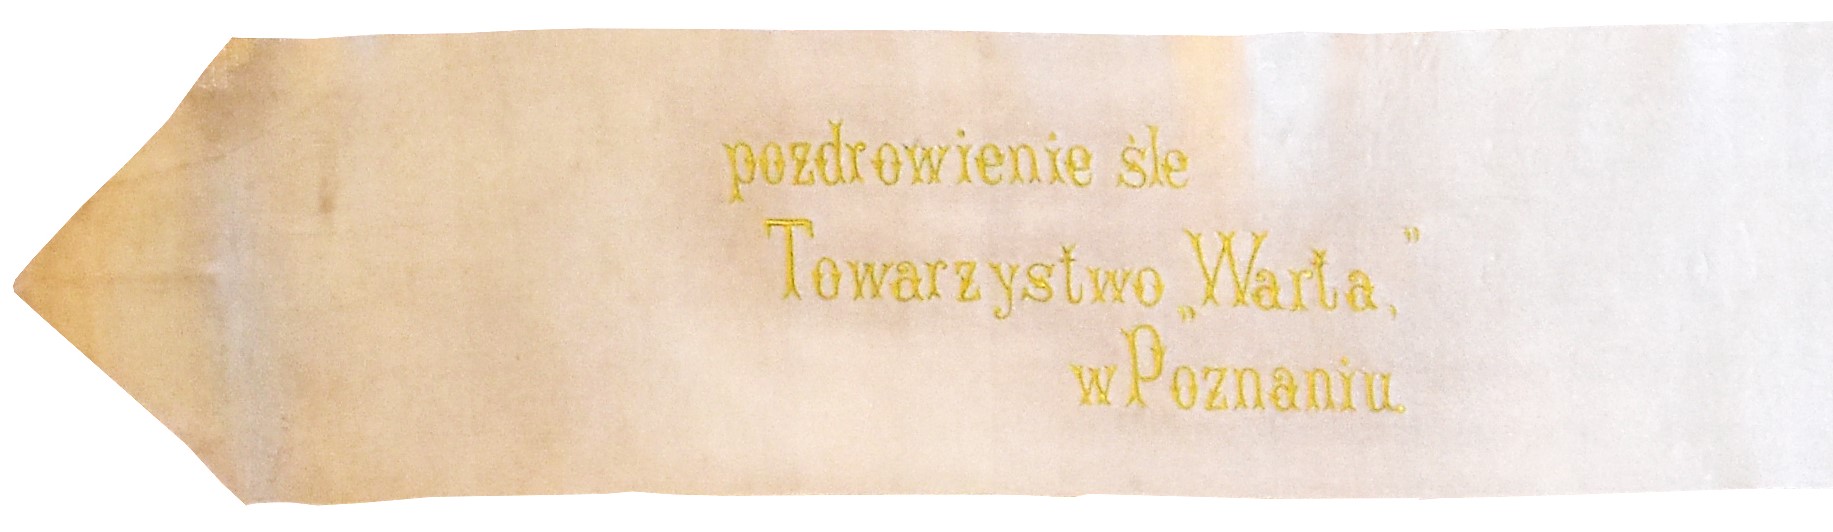 pozdrowienie śle
Towarzystwo „Warta,”
w Poznaniu.